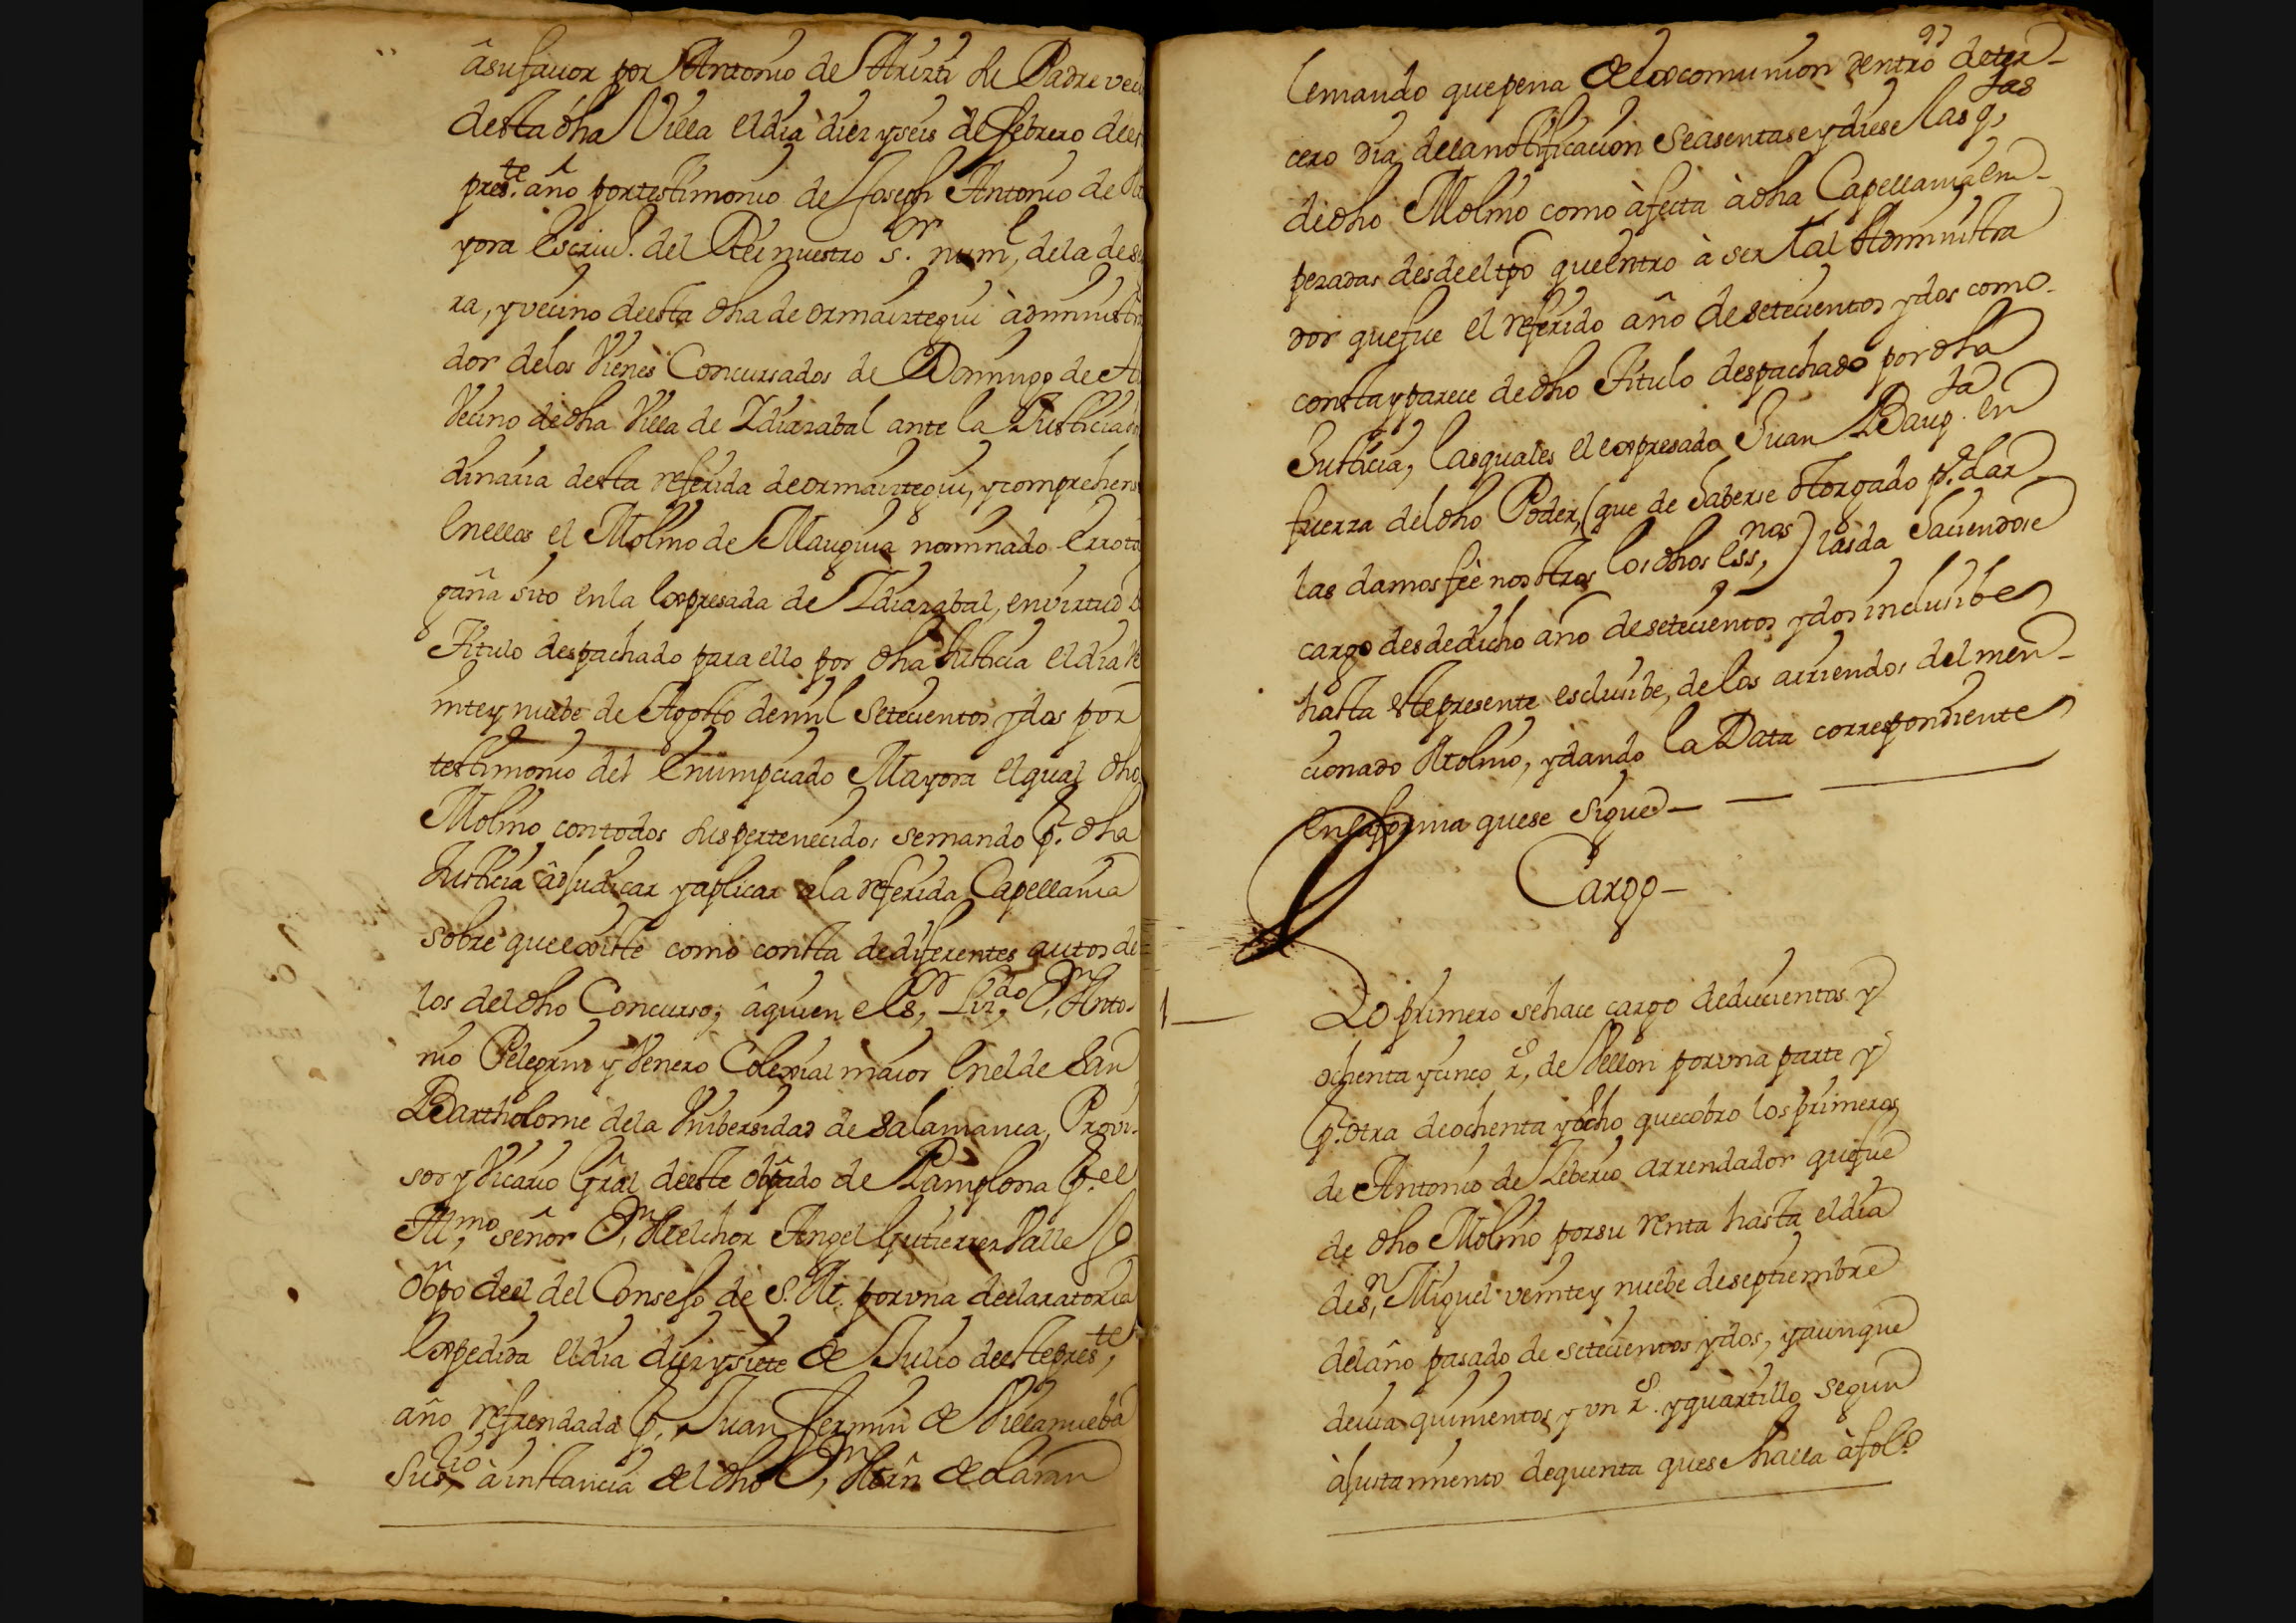 âsufauor por Antonio de Arizti su Padre veci
destadha Villa eldia diez yseis de febrero deest
preste. año portestimonio de Joseph Antonio de
yora Escriuº. del Rei nuestro Sr. numl, dela desu
ra, yvecino deesta dha de ormaiztegui âdministra
dor delos Vienes Concursados de Domingo de
Vecino dedha Villa de Ydiazabal ante la Justicia or
dinaria desta referida deormaiztegui, ycomprehens
Enellos el Molino de Mauguia nominado Errota
gaña sito enla Expresada de Ydiazabal, envirtud d
Titulo despachado para ello por dha Justicia eldia ve
inteynuebe de Agosto demil Setecientos ydos por
testimonio del Enumpciado Mayora elqual dho
Molino contodos suspertenecidos semando p. dha
Justicia âdjudicar yaplicar ala referida Capellania
sobre queexiste como consta dediferentes autos de
los deldho Concurso, âquien elSr, Lizdo, Dn, Anto-
nio Pelegrin y Venero Colexial maior Enelde San
Bartholome dela Vnibersidad de Salamanca, Provi-
sor y Vicario Gral deeste obpado de Pamplona p. el
Illmo, señor Dn, Melchor Angel Gutierrez Valle
obpo deel del Consejo de S. M. porvna declaratoria
Expedida eldia diez ysiete de Julio deestepreste,
año refrendada p, Juan fermin de Villanueba
Susrio, âinstancia deldho Dn, Mrñ de Laran
97
Emando quepena de Excomunion dentro deter-
cero dia delanotificacion Seasentase ydiese las qtas,
dedho Molino como âfecta âdha Capellania em-
pezadas desdeeltpo queentro â ser tal Administra
dor quefue el referido año desetecientos ydos como
consta yparece dedho Titulo despachado pordha
Justicia, lasquales elexpresado Juan Baupta. en
fuerza deldho Poder, (que de haberse otorgado p.a dar
las damosfeè nosotros losdhos Essnos,) lasda haciendose
cargo desdedicho año desetecientos ydos inclusibe
hasta estepresente esclusibe, delos arriendos delmen-
cionado Molino, ydando la Data correspondiente
enlaforma quese sigue
Cargo-
1 Lo primero sehace cargo deducientos y
ochenta ycinco rs, de Vellon porvna parte y
p. otra deochenta yocho quecobro losprimeros
de Antonio de Yeberio arrendador quefue
de dho Molino porsu renta hasta eldia
deSn, Miguel veinte y nuebe deseptiembre
delaño pasado de setecientos ydos, yaunque
deuia quinientos y vn rs. yquartillo segun
âjustamiento dequenta quese halla âfolº